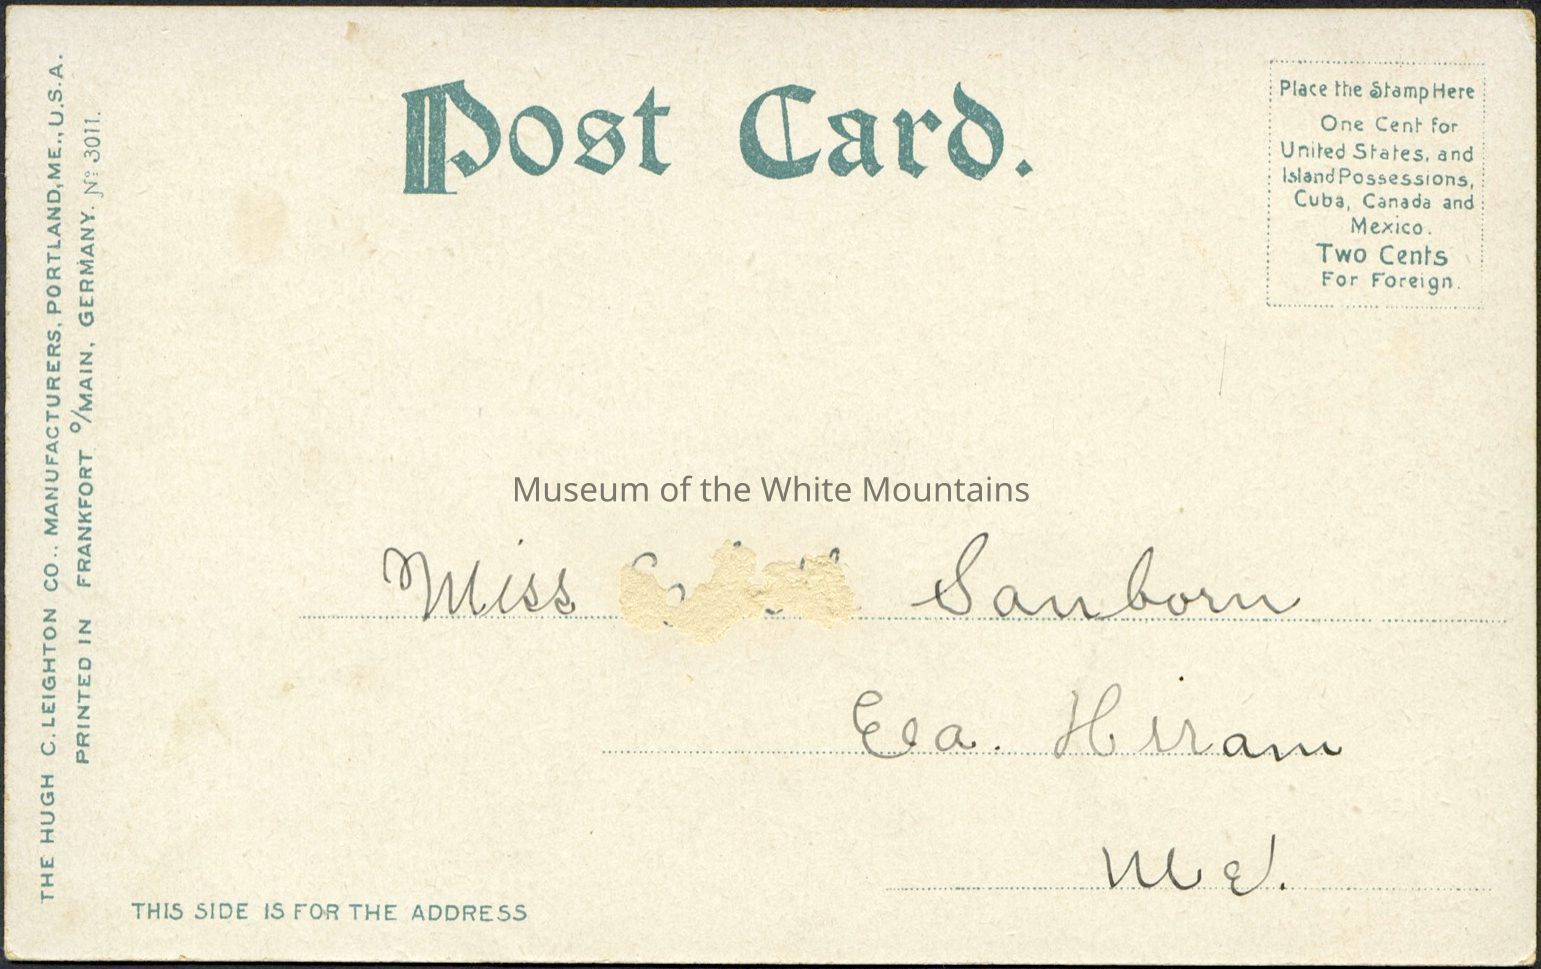 Post Card.
Place the Stamp Here
One Cent for
United States, and
Island Possessions,
Cuba, Canada and
Mexico.
Two Cents
For Foreign.
THE HUGH C. LEIGHTON CO., MANUFACTURERS, PORTLAND, ME., U.S.A.
PRINTED IN FRANKFORT o/MAIN, GERMANY. No 3011.
Museum of the White Mountains
Miss Sanborn
Ea. Hiram
Me.
THIS SIDE IS FOR THE ADDRESS